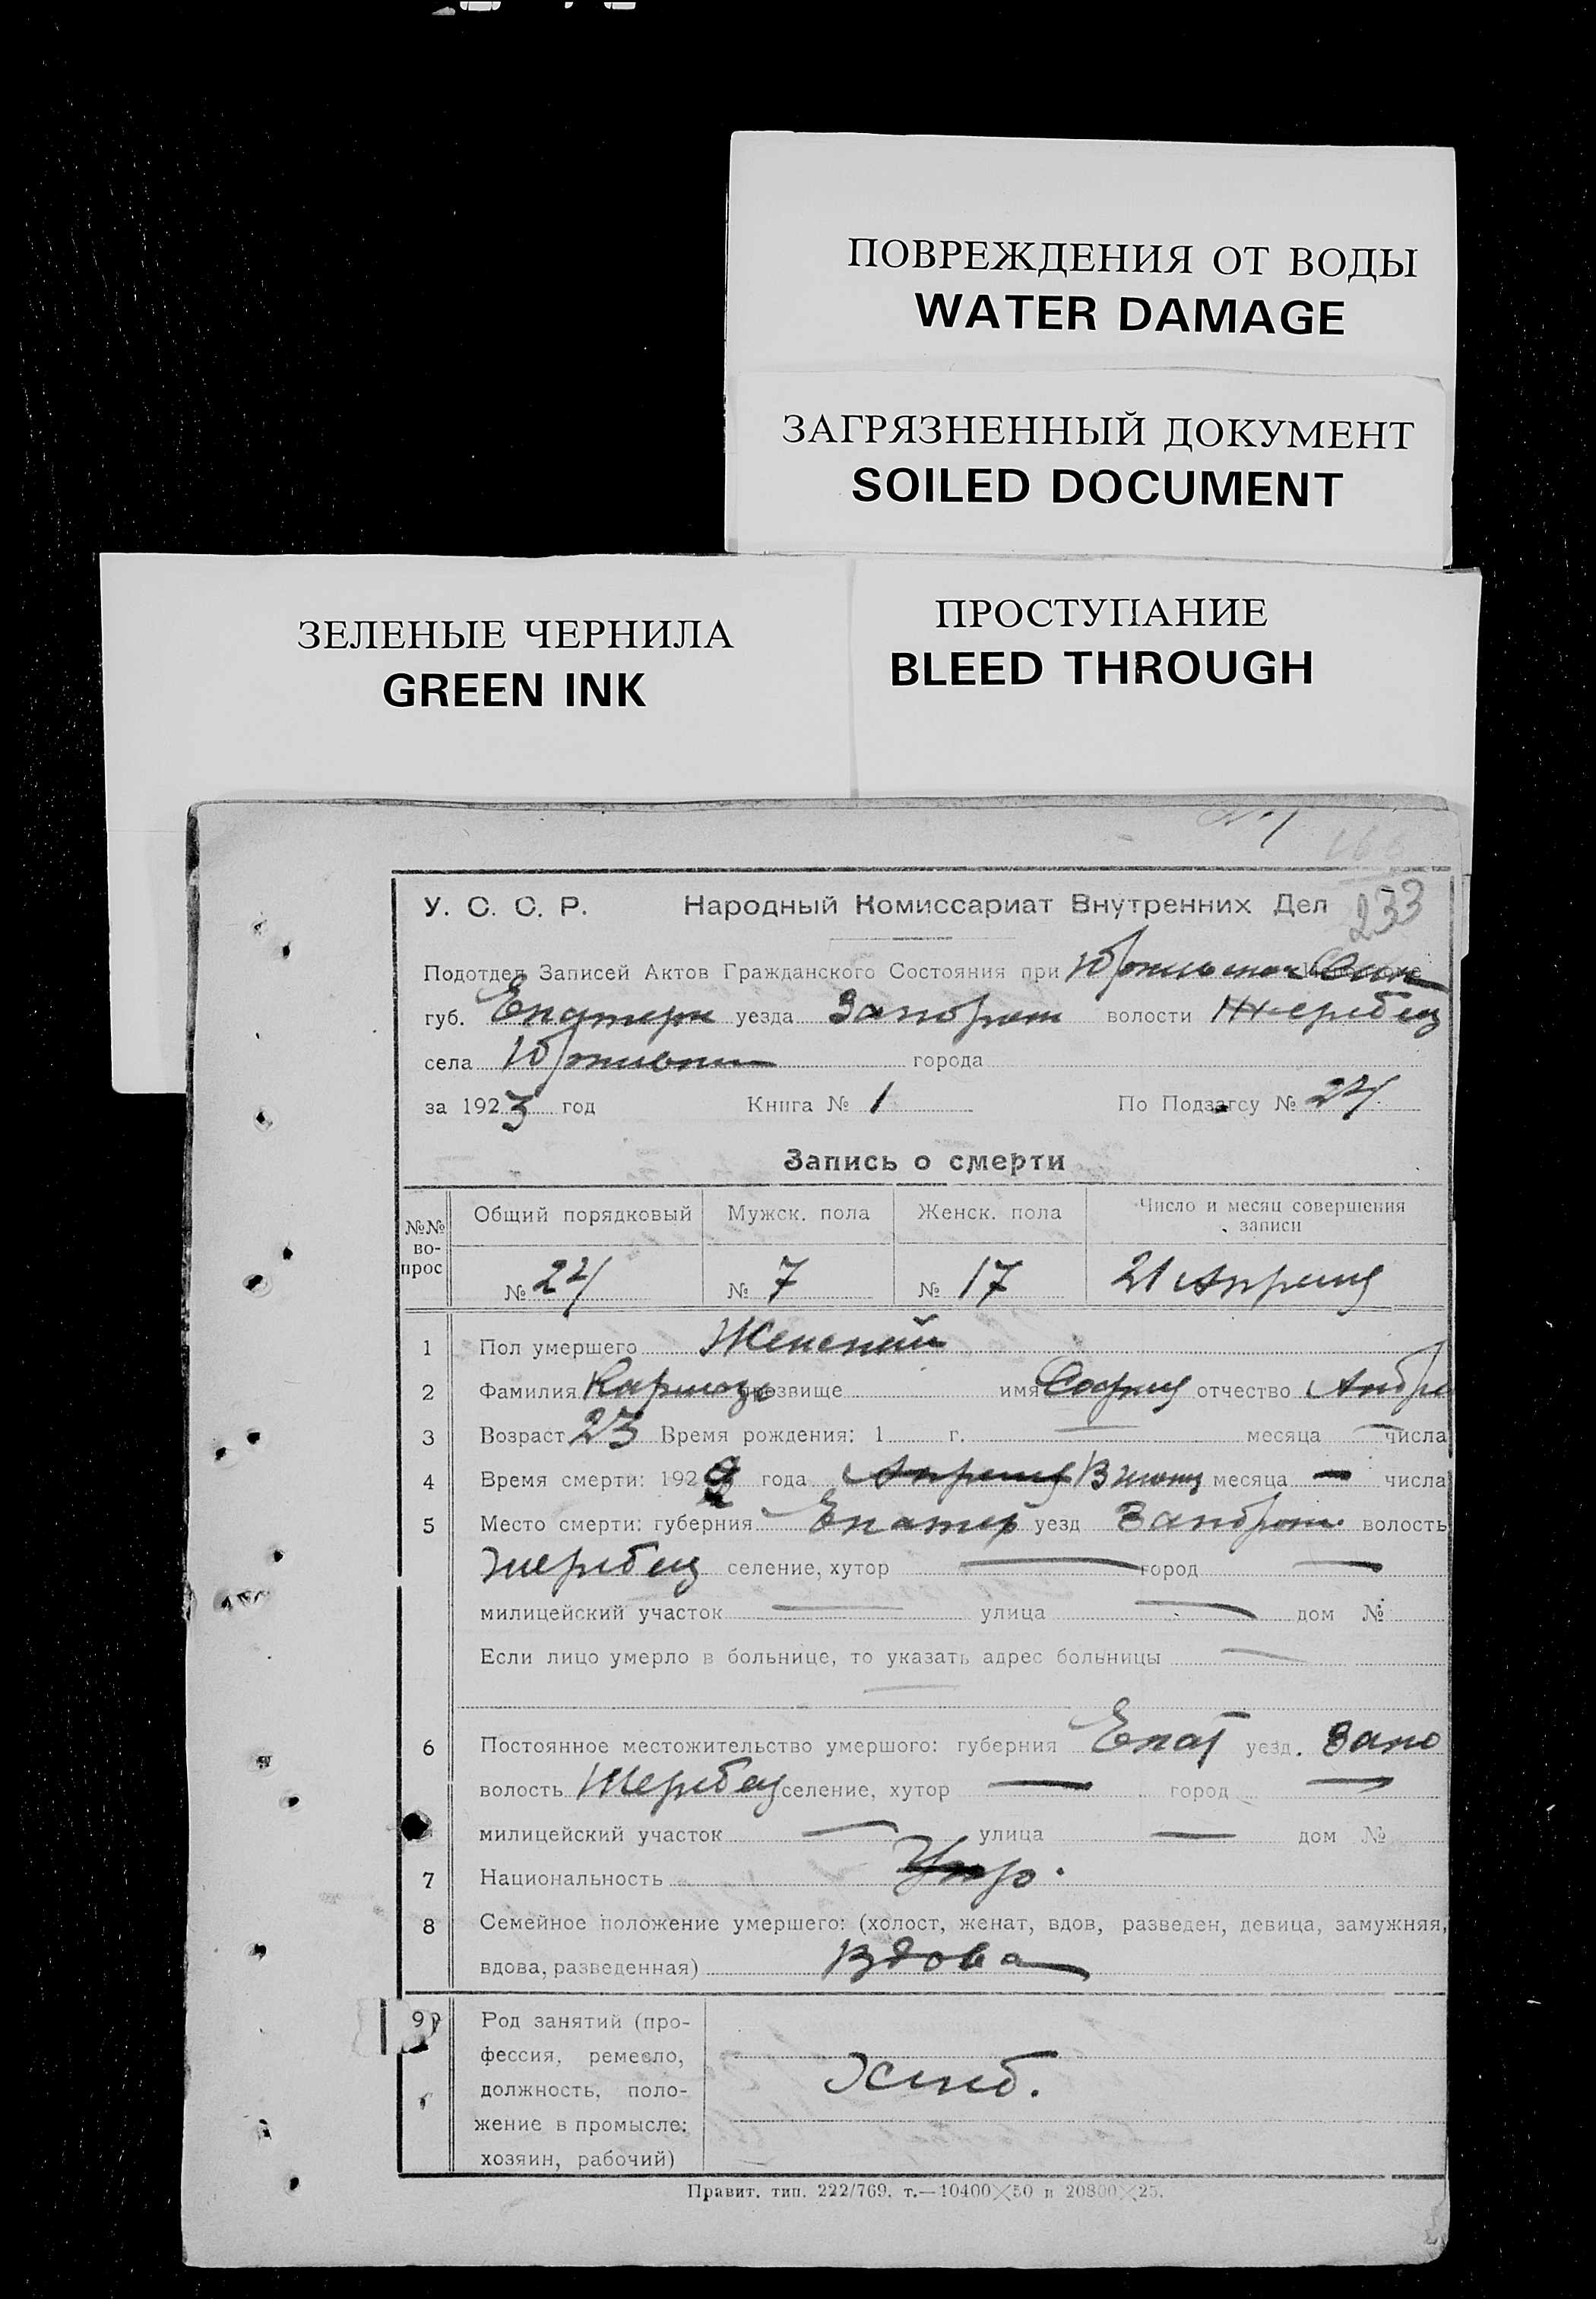 ПОВРЕЖДЕНИЯ ОТ ВОДЫ
WATER DAMAGE
ЗАГРЯЗНЕННЫЙ ДОКУМЕНТ
SOILED DOCUMENT
ЗЕЛЕНЫЕ ЧЕРНИЛА
GREEN INK
ПРОСТУПАНИЕ
BLEED THROUGH
233
У. С. С. Р. Народный Комиссариат Внутренних Дел
Подотдел Записей Актов Гражданского Состояния при
губ. Екатери уезда Запорож волости Жеребец
села города
за 1923 год Книга № 1 По Подзагсу № 24
Запись о смерти
№№ во-прос Общий порядковый Мужск. пола Женск. пола Число и месяц совершения записи
№ 24 № 7 № 17 21 Апреля
1 Пол умершего Женский
2 Фамилия прозвище имя София отчество Андре
3 Возраст 23 Время рождения: 1 г. — месяца — числа
4 Время смерти: 192 года Апреля месяца — числа
5 Место смерти: губерния Екатер уезд Запорож. волость
Жеребец селение, хутор — город —
милицейский участок — улица — дом №
Если лицо умерло в больнице, то указать адрес больницы —
6 Постоянное местожительство умершого: губерния Екат уезд. Запо
волость Жеребец селение, хутор — город —
милицейский участок — улица — дом №
7 Национальность Укр.
8 Семейное положение умершего: (холост, женат, вдов, разведен, девица, замужняя,
вдова, разведенная) Вдова
9 Род занятий (про-
фессия, ремесло,
должность, поло- Хлеб.
жение в промысле:
хозяин, рабочий)
Правит. тип. 222/769. т.—10400×50 и 20800×25.